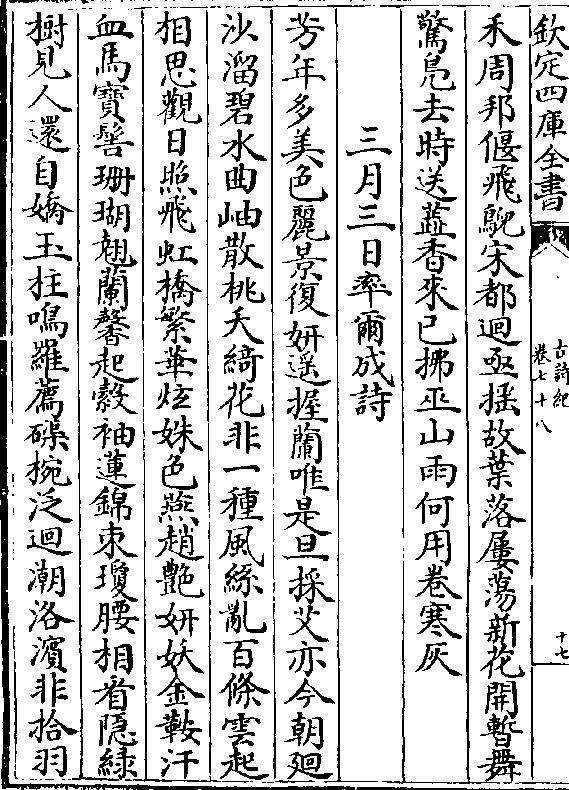 欽定四庫全書
古詩紀
卷七十八
十七
禾周邦偃飛鶂宋都迴亟揺故葉落屢蕩新花開暫舞
驚鳬去時送蓝香來已拂巫山雨何用卷寒灰
三月三日率爾成詩
芳年多美色麗景復妍遥握蘭唯是旦採艾亦今朝廻
沙溜碧水曲岫散桃夭綺花非一種風絲亂百條雲起
相思觀日照飛虹橋繁華炫姝色燕趙艶妍妖金鞍汗
血馬寳髻珊瑚翹蘭馨起縠袖蓮錦束瓊腰相看隠緑
樹見人還自嬌玉柱鳴羅薦磲椀泛迴潮洛濱非拾羽